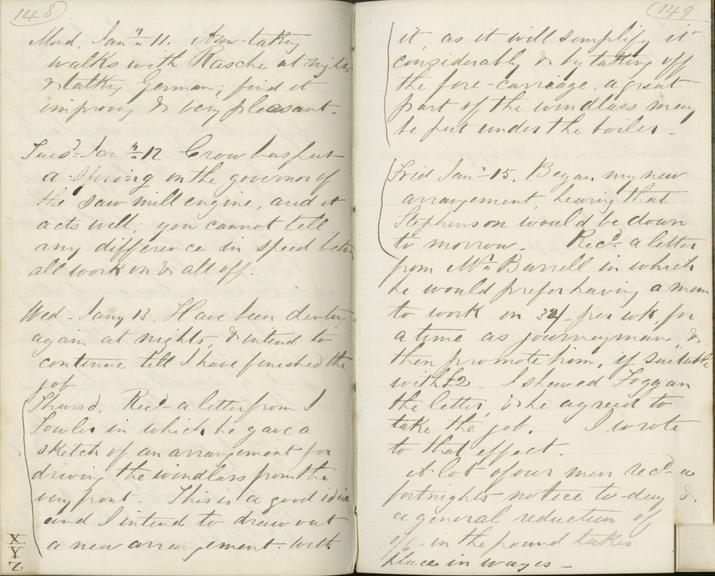 148
Mond. Jany 11. Now taking
walks with Rasche at nights
& talking German; find it
improving & very pleasant.
Tuesd. Jany 12 Crow has put
a spring on the governor of
the saw mill engine, and it
acts well; you cannot tell
any difference in speed betwn
all work on & all off.
Wed. Jany 13. Have been
again at nights, & intend to
continue till I have finished the
job
Thursd. Recd a letter from J
Fowler in which he gave a
sketch of an arrangement for
driving the windlass from the
very front. This is a good idea
and I intend to draw out
a new arrangement with
X
Y
Z
149
it, as it will simplify it
considerably & by taking off
the fore-carriage, a great
part of the windlass may
be put under the boiler.
Frid Jany 15. Began my new
arrangement, hearing that
Stephenson would be down
to morrow. Recd a letter
from Mr Burrell in which
he would prefer having a man
to work on 32/- per wk for
a time as journeyman, &
then promote him, if suitable
with £2. I shewed Foggan
the letter, & he agreed to
take the job. I wrote
to that effect.
A lot of our men recd a
fortnights notice to-day &
a general reduction of
in the pound takes
place in wages -